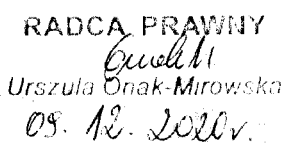 RADCA PRAWNY
Urszula Onak-Mirowska
09. 12. 2020r.